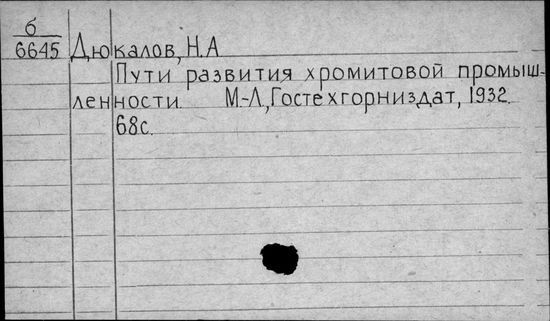 б
6645 Дюкалов, Н.А
Пути развития хромитовой промыш-
ленности. М.-Л., Гостехгорниздат, 1932.
68с.